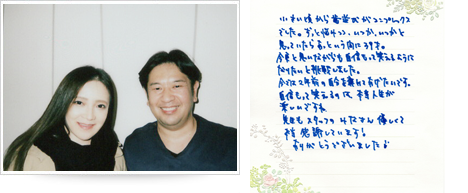 小さい頃から歯並びがコンプレックス
でした。ずっと悩みつつ、いつか、いつかと
思っていたらあっという間に39才。
今更と思いながらも自信もって笑えるように
なりたいと挑戦しました。
今では2年前の自分を褒めてあげたいです。
自信もって笑えるのは、本当人生が
楽しいですね
先生もスタッフの方も皆さん優しくて
本当感謝しています!
ありがとうございました♪